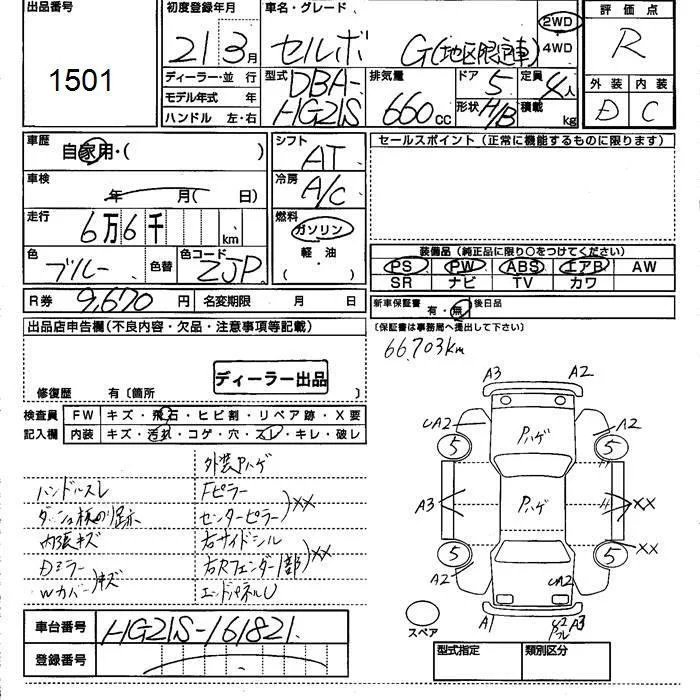 出品番号 1501
初度登録年月 21 3月
車名・グレード セルボ G(地区限定車)
2WD 4WD
評価点 R
外装 内装
D C
ディーラー・並行
モデル年式 年
ハンドル 左・右
型式 DBA-HG21S
排気量 660cc
ドア 5
形状 H/B
定員 4人
積載 kg
車歴 自家用・( )
車検 年 月( 日)
走行 6万6千 km
色 ブルー 色替
色コード ZJP
シフト AT
冷房 A/C
燃料 ガソリン
軽・油
( )
セールスポイント(正常に機能するものに限ります)
装備品(純正品に限り○をつけてください)
PS PW ABS エアB AW
SR ナビ TV カワ
R券 9,670円 名変期限 月 日
新車保証書 有・無 後日品
(保証書は事務局へ提出して下さい)
66,703km
出品店申告欄(不良内容・欠品・注意事項等記載)
ディーラー出品
修復歴 有〔箇所 〕
検査員記入欄
FW キズ・飛石・ヒビ割・リペア跡・X要
内装 キズ・汚れ・コゲ・穴・スレ・キレ・破レ
外装Pハゲ
ハンドルスレ Fピラー
センターピラー )XX
内張キズ 右サイドシル
Dミラー 右Rフェンダー(1部) )XX
Wカバー )キズ エンドパネルU
A3 A2
UA2 A2
Pハゲ
5 5
A3 Pハゲ XX
XX
5 5
A2 UA2
A1 U2 A3
スペア
車台番号 HG21S-161821
登録番号
型式指定 類別区分